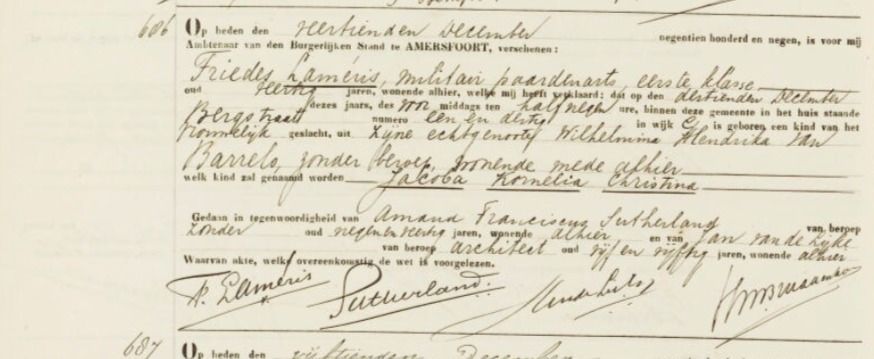 606 Op heden den veertienden December negentien honderd en negen, is voor mij
Ambtenaar van den Burgerlijken Stand te AMERSFOORT, verschenen:
Friedes Laméris, militair paardenarts, eerste klasse
oud veertig jaren, wonende alhier, welke mij heeft verklaard; dat op den dertienden December
dezes jaars, des voor middags ten half negen ure, binnen deze gemeente in het huis staande
Bergstraat numero een en dertig in wijk C is geboren een kind van het
vrouwelijk geslacht, uit zijne echtgenoote Wilhelmina Hendrika van
Barrels, zonder beroep, wonende mede alhier
welk kind zal genaamd worden Jacoba Kornelia Christina
Gedaan in tegenwoordigheid van Amand Franciscus Sutherland van beroep
zonder oud negenenveertig jaren, wonende alhier en van Jan van de
van beroep architect oud vijf en vijftig jaren, wonende alhier
Waarvan akte, welke overeenkomstig de wet is voorgelezen.
F. Laméris Sutherland.
687 Op heden den vijftienden December